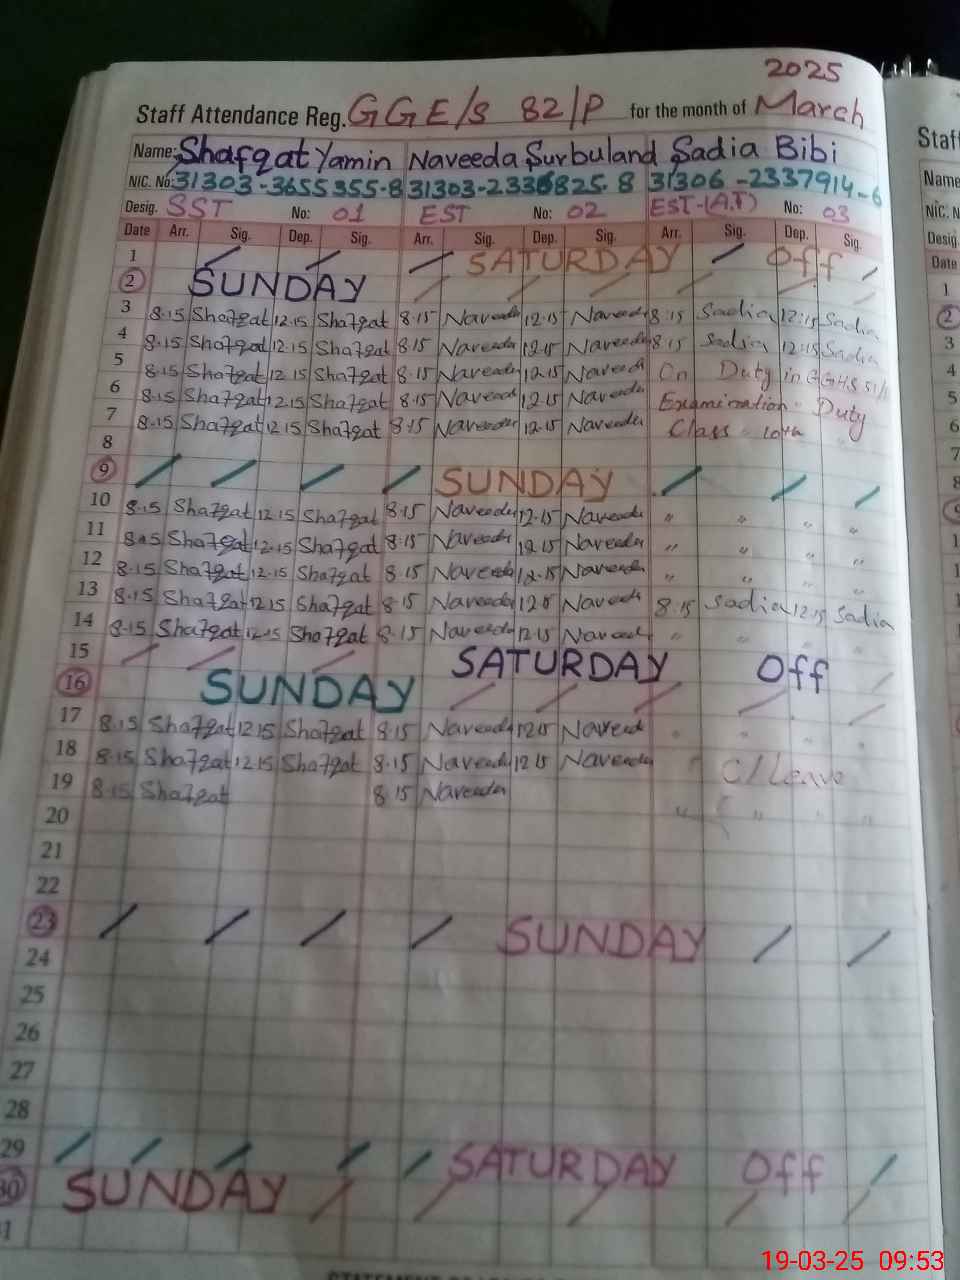 2025
Staff Attendance Reg. GGE/S 82/P for the month of March
Name: Shafqat Yamin Naveeda Surbuland Sadia Bibi
NIC. No: 31303-3655355-8 31303-2336825-8 31306-2337914-6
Desig. SST No: 01 EST No: 02 EST-(A.T) No: 03
Date Arr. Sig. Dep. Sig. Arr. Sig. Dep. Sig. Arr. Sig. Dep. Sig.
1 SATURDAY Off
2 SUNDAY
3 8.15 Shafqat 12.15 Shafqat 8.15 Naveeda 12.15 Naveeda 8:15 Sadia 12:15 Sadia
4 8.15 Shafqat 12.15 Shafqat 8.15 Naveeda 12.15 Naveeda 8:15 Sadia 12:15 Sadia
5 8.15 Shafqat 12.15 Shafqat 8.15 Naveeda 12.15 Naveeda On Duty in GGHS
6 8.15 Shafqat 12.15 Shafqat 8.15 Naveeda 12.15 Naveeda Examination Duty
7 8.15 Shafqat 12.15 Shafqat 8.15 Naveeda 12.15 Naveeda Class 10th
8
9 SUNDAY
10 8.15 Shafqat 12.15 Shafqat 8.15 Naveeda 12.15 Naveeda " " " "
11 8.15 Shafqat 12.15 Shafqat 8.15 Naveeda 12.15 Naveeda " " " "
12 8.15 Shafqat 12.15 Shafqat 8.15 Naveeda 12.15 Naveeda " " " "
13 8.15 Shafqat 12.15 Shafqat 8.15 Naveeda Naveeda 8:15 Sadia 12:15 Sadia
14 8.15 Shafqat 12.15 Shafqat 8.15 Naveeda 12.15 Naveeda " " " "
15 SATURDAY Off
16 SUNDAY
17 8.15 Shafqat 12.15 Shafqat 8.15 Naveeda 12.15 Naveed " " " "
18 8.15 Shafqat 12.15 Shafqat 8.15 Naveeda 12.15 Naveeda C/Leave
19 8.15 Shafqat 8.15 Naveeda " " " "
20
21
22
23 SUNDAY
24
25
26
27
28
29 SATURDAY Off
30 SUNDAY
Staff
Name
NIC. N
Desig
Date
1
2
3
4
5
6
7
8
19-03-25 09:53